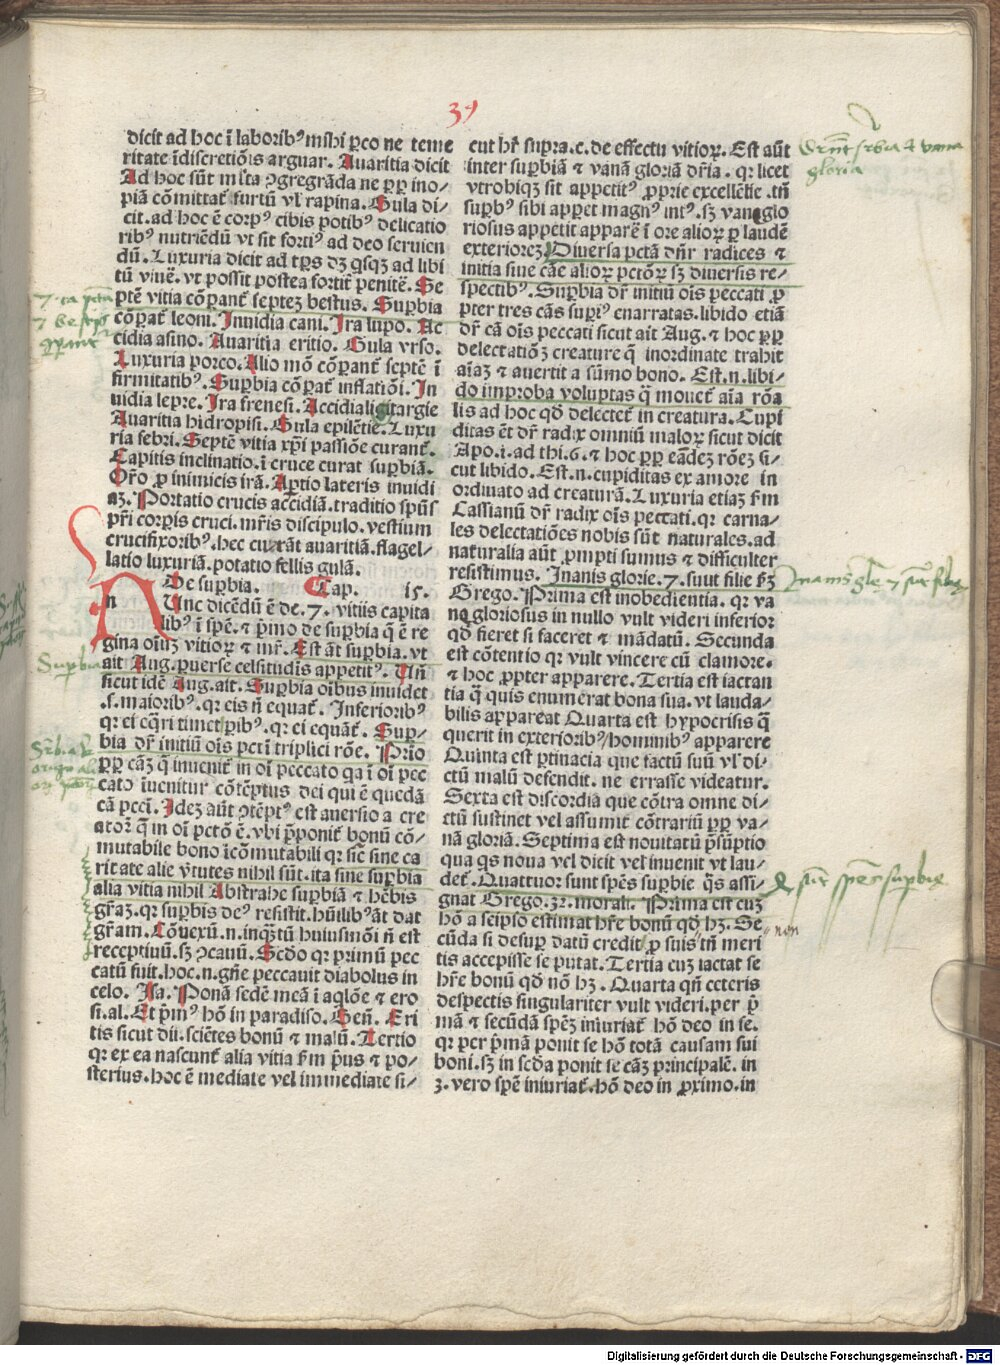 39
dicit ad hoc ī laborib⁹ mīhi ꝑco ne teme
ritate īdiscretiōis arguar. Auaritia dicit
Ad hoc sūt ml'ta ꝯgregrāda ne ꝓꝑ ino/
piā cōmittat̄ furtū vl' rapina. Gula di/
cit. ad hoc ē corp⁹ cibis potib⁹ delicatio
rib⁹ nutriēdū vt sit forti⁹ ad deo seruien
dū. Luxuria dicit ad tp̄s dꝫ qsqꝫ ad libi
tū viuē. vt possit postea fortit̄ penitē. Se
ptē vitia cōꝑant̄ septeꝫ bestijs. Suꝑbia
cōꝑat̄ leoni. Inuidia cani. Ira lupo. Ac
cidia asino. Auaritia eritio. Gula vrso.
Luxuria porco. Alio mō cōꝑant̄ septē ī
firmitatib⁹. Suꝑbia cōꝑat̄ inflatiōi. In
uidia lepre. Ira frenesi. Accidia litargie
Auaritia hidropisi. Gula epilētie. Luxu
ria febri. Septē vitia xp̄i passiōe curant̄.
Capitis inclinatio. ī cruce curat suꝑbiā.
Or̄o ꝓ inimicis irā. Aꝑtio lateris inuidi
aꝫ. Portatio crucis accidiā. traditio spūs
pr̄i corꝑis cruci. mr̄is discipulo. vestium
crucifixorib⁹. hec curāt auaritiā. flagel/
latio luxuriā. potatio fellis gulā.
De suꝑbia. Cap. 15.
n Unc dicēdū ē de .7. vitiis capita
lib⁹ ī spē. ⁊ p̄mo de suꝑbia q̄ ē re
gina oīuꝫ vitioꝝ ⁊ mr̄. Est āt suꝑbia. vt
ait Aug. ꝑuerse celsitudīs appetit⁹. Un̄
sicut idē Aug. ait. Suꝑbia oībus inuidet
.s. maiorib⁹. qꝛ eis n̄ equat̄. Inferiorib⁹
qꝛ ei eq̄ri timet pib⁹. qꝛ ei equāt̄. Suꝑ/
bia dr̄ initiū oīs pctī triplici rōe. Prīo
ꝓꝑ cāꝫ q̄ inuenit̄ in oī peccato qa ī oī pec
cato īuenitur cōtēptus dei qui ē quedā
cā pccī. Idez aūt ꝯtēpt⁹ est auersio a cre
atoꝝ q̄ m oī pctō ē. vbi p̄ponit̄ bonū cō/
mutabile bono īcōmutabili qꝛ sic̄ sine ca
ritate alie v̄tutes nihil sūt. ita sine suꝑbia
alia vitia nihil Abstrahe suꝑbiā ⁊ hēbis
gr̄aꝫ. qꝛ suꝑbis de⁹ resistit. hūilib⁹ āt dat
gr̄am. Cōuexū .n. inqꝫtū huiusmōi n̄ est
receptiuū. sꝫ ꝯcauū. Scdo qꝛ primū pec
catū fuit. hoc .n. gn̄e peccauit diabolus in
celo. Isa. Ponā sedē meā ī aqlōe ⁊ ero
si. al. Et p̄m⁹ hō in paradiso. Gen̄. Eri
tis sicut dii. sciētes bonū ⁊ malū. Tertio
qꝛ ex ea nascunt̄ alia vitia s̄m p̄us ⁊ po/
sterius. hoc ē mediate vel immediate si/
cut hr̄ supra. c. de effectu vitioꝝ. Est aūt
inter suꝑbiā ⁊ vanā gloriā dr̄ia. qꝛ licet
vtrobiqꝫ sit appetit⁹ ꝓprie excellētie. tn̄
suꝑb⁹ sibi appꝫet magn⁹ int⁹. sꝫ vanaglo
riosus appetit apparē ī ore alioꝝ ꝑ laudē
exterioreꝫ Diuersa pctā dn̄r radices ⁊
initia siue cāe alioꝝ pctōꝝ sꝫ diuersis re/
spectib⁹. Suꝑbia dr̄ initiū oīs peccati ꝓ
pter tres cās supi⁹ enarratas. libido etiā
dr̄ cā oīs peccati sicut ait Aug. ⁊ hoc ꝓꝑ
delectatiōꝫ creature q̄ inordinate trahit
aīaꝫ ⁊ auertit a sūmo bono. Est .n. libi/
do improba voluptas q̄ mouet̄ aīa rōa
lis ad hoc qd̄ delectet̄ in creatura. Cupi
ditas ēt dr̄ radix omniū maloꝝ sicut dicit
Apo. i. ad thi. 6. ⁊ hoc ꝓꝑ eādeꝫ rōeꝫ si/
cut libido. Est .n. cupiditas ex amore in
ordinato ad creaturā. Luxuria etiaꝫ s̄m
Cassianū dr̄ radix oīs peccati. qꝛ carna/
les delectatiōes nobis sūt naturales. ad
naturalia aūt ꝓmpti sumus ⁊ difficulter
resistimus. Inanis glorie .7. sunt filie s̄ꝫ
Grego. Prima est inobedientia. qꝛ va
nꝰ gloriosus in nullo vult videri inferior
qd̄ fieret si faceret ⁊ mādatū. Secunda
est cōtentio qꝛ vult vincere cū clamore.
⁊ hoc ꝓpter apparere. Tertia est iactan
tia q̄ quis enumerat bona sua. vt lauda/
bilis appareat Quarta est hypocrisis q̄
querit in exteriorib⁹/hominib⁹ apparere
Quinta est ꝑtinacia que factū suū vl' di/
ctū malū defendit. ne errasse videatur.
Sexta est discordia que cōtra omne di/
ctū sustinet vel assumit cōtrariū ꝓꝑ va/
nā gloriā. Septima est nouitatū p̄sūptio
qua qs noua vel dicit vel inuenit vt lau/
det̄. Quattuor sunt spēs suꝑbie q̄s assi/
gnat Grego. 32. moral. Prima est cuꝫ
hō a seipso estimat hr̄e bonū qd̄ hꝫ. Se
cūda si desuꝑ datū credit ꝓ suis tn̄ meri
tis accepisse se putat. Tertia cuꝫ iactat se
hr̄e bonū qd̄ nō hꝫ. Quarta qn̄ ceteris
despectis singulariter vult videri. per p̄
mā ⁊ secūdā spēꝫ iniuriat̄ hō deo in se.
qꝛ per p̄mā ponit se hō totā causam sui
boni. sꝫ in scda ponit se cāꝫ principalē. in
3. vero spē iniuriat̄. hō deo in ꝓximo. in
gloria
Suꝑbia
non
Digitalisierung gefördert durch die Deutsche Forschungsgemeinschaft - DFG